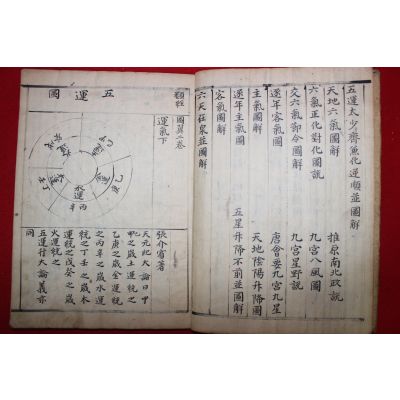 五運太少齊兼化逆順並圖解
天地六氣圖解 推原南北政說
六氣正化對化圖說 九宮八風圖
交六氣節令圖解 九宮星野說
逐年客氣圖解 唐會要九宮九星
主氣圖解 天地陰陽升降圖
逐年主氣圖解 五星升降不前並圖解
客氣圖解
天在泉並圖解
類經
圖翼二卷
運氣下
張介賓著
天元紀大論曰甲
之歲土運統之
乙庚之歲金運統
之丙辛之歲水運
統之丁壬之歲木
運統之戊癸之歲
火運統之
五運行大論義亦
同
五運圖
金運
乙庚
水運
丙辛